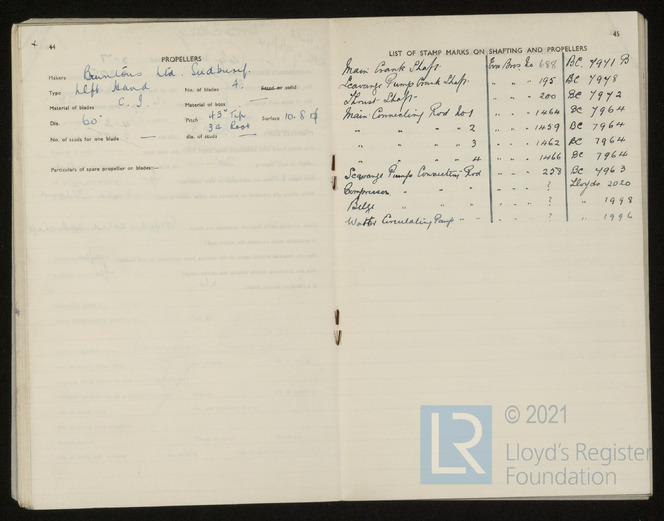 44
PROPELLERS
Makers Bruntons Ltd. Sudbury.
Type Left Hand No. of blades 4.
Material of blades C. I. Material of boss Fitted or solid
Dia. 60" Pitch 43" Tip 34 Root Surface 10.8
No. of studs for one blade — dia. of studs —
Particulars of spare propeller or blades:—
45
LIST OF STAMP MARKS ON SHAFTING AND PROPELLERS
Main Crank Shaft. Bros 688 BC. 7941 B
Scavange Pump Crank Shaft. " " " 195 BC 7948
Thrust Shaft. " " " 200 BC 7972
Main Connecting Rod No 1 " " " 1464 BC 7964
" " " 2 " " " 1459 BC 7964
" " " 3 " " " 1462 BC 7964
" " " 4 " " " 1466 BC 7964
Scavange Pump Connecting Rod " " " 258 BC 7963
Compressor " " " " " " ? Lloyds 2020
Bilge " " " " " " ? " 1998
Water Circulating Pump " " " " " ? " 1996
© 2021
LR
Lloyd's Register
Foundation